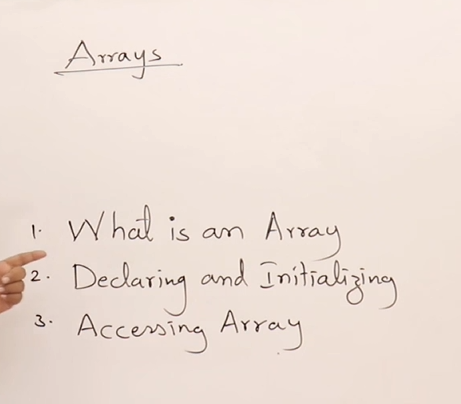 Arrays
1. What is an Array
2. Declaring and Initializing
3. Accessing Array